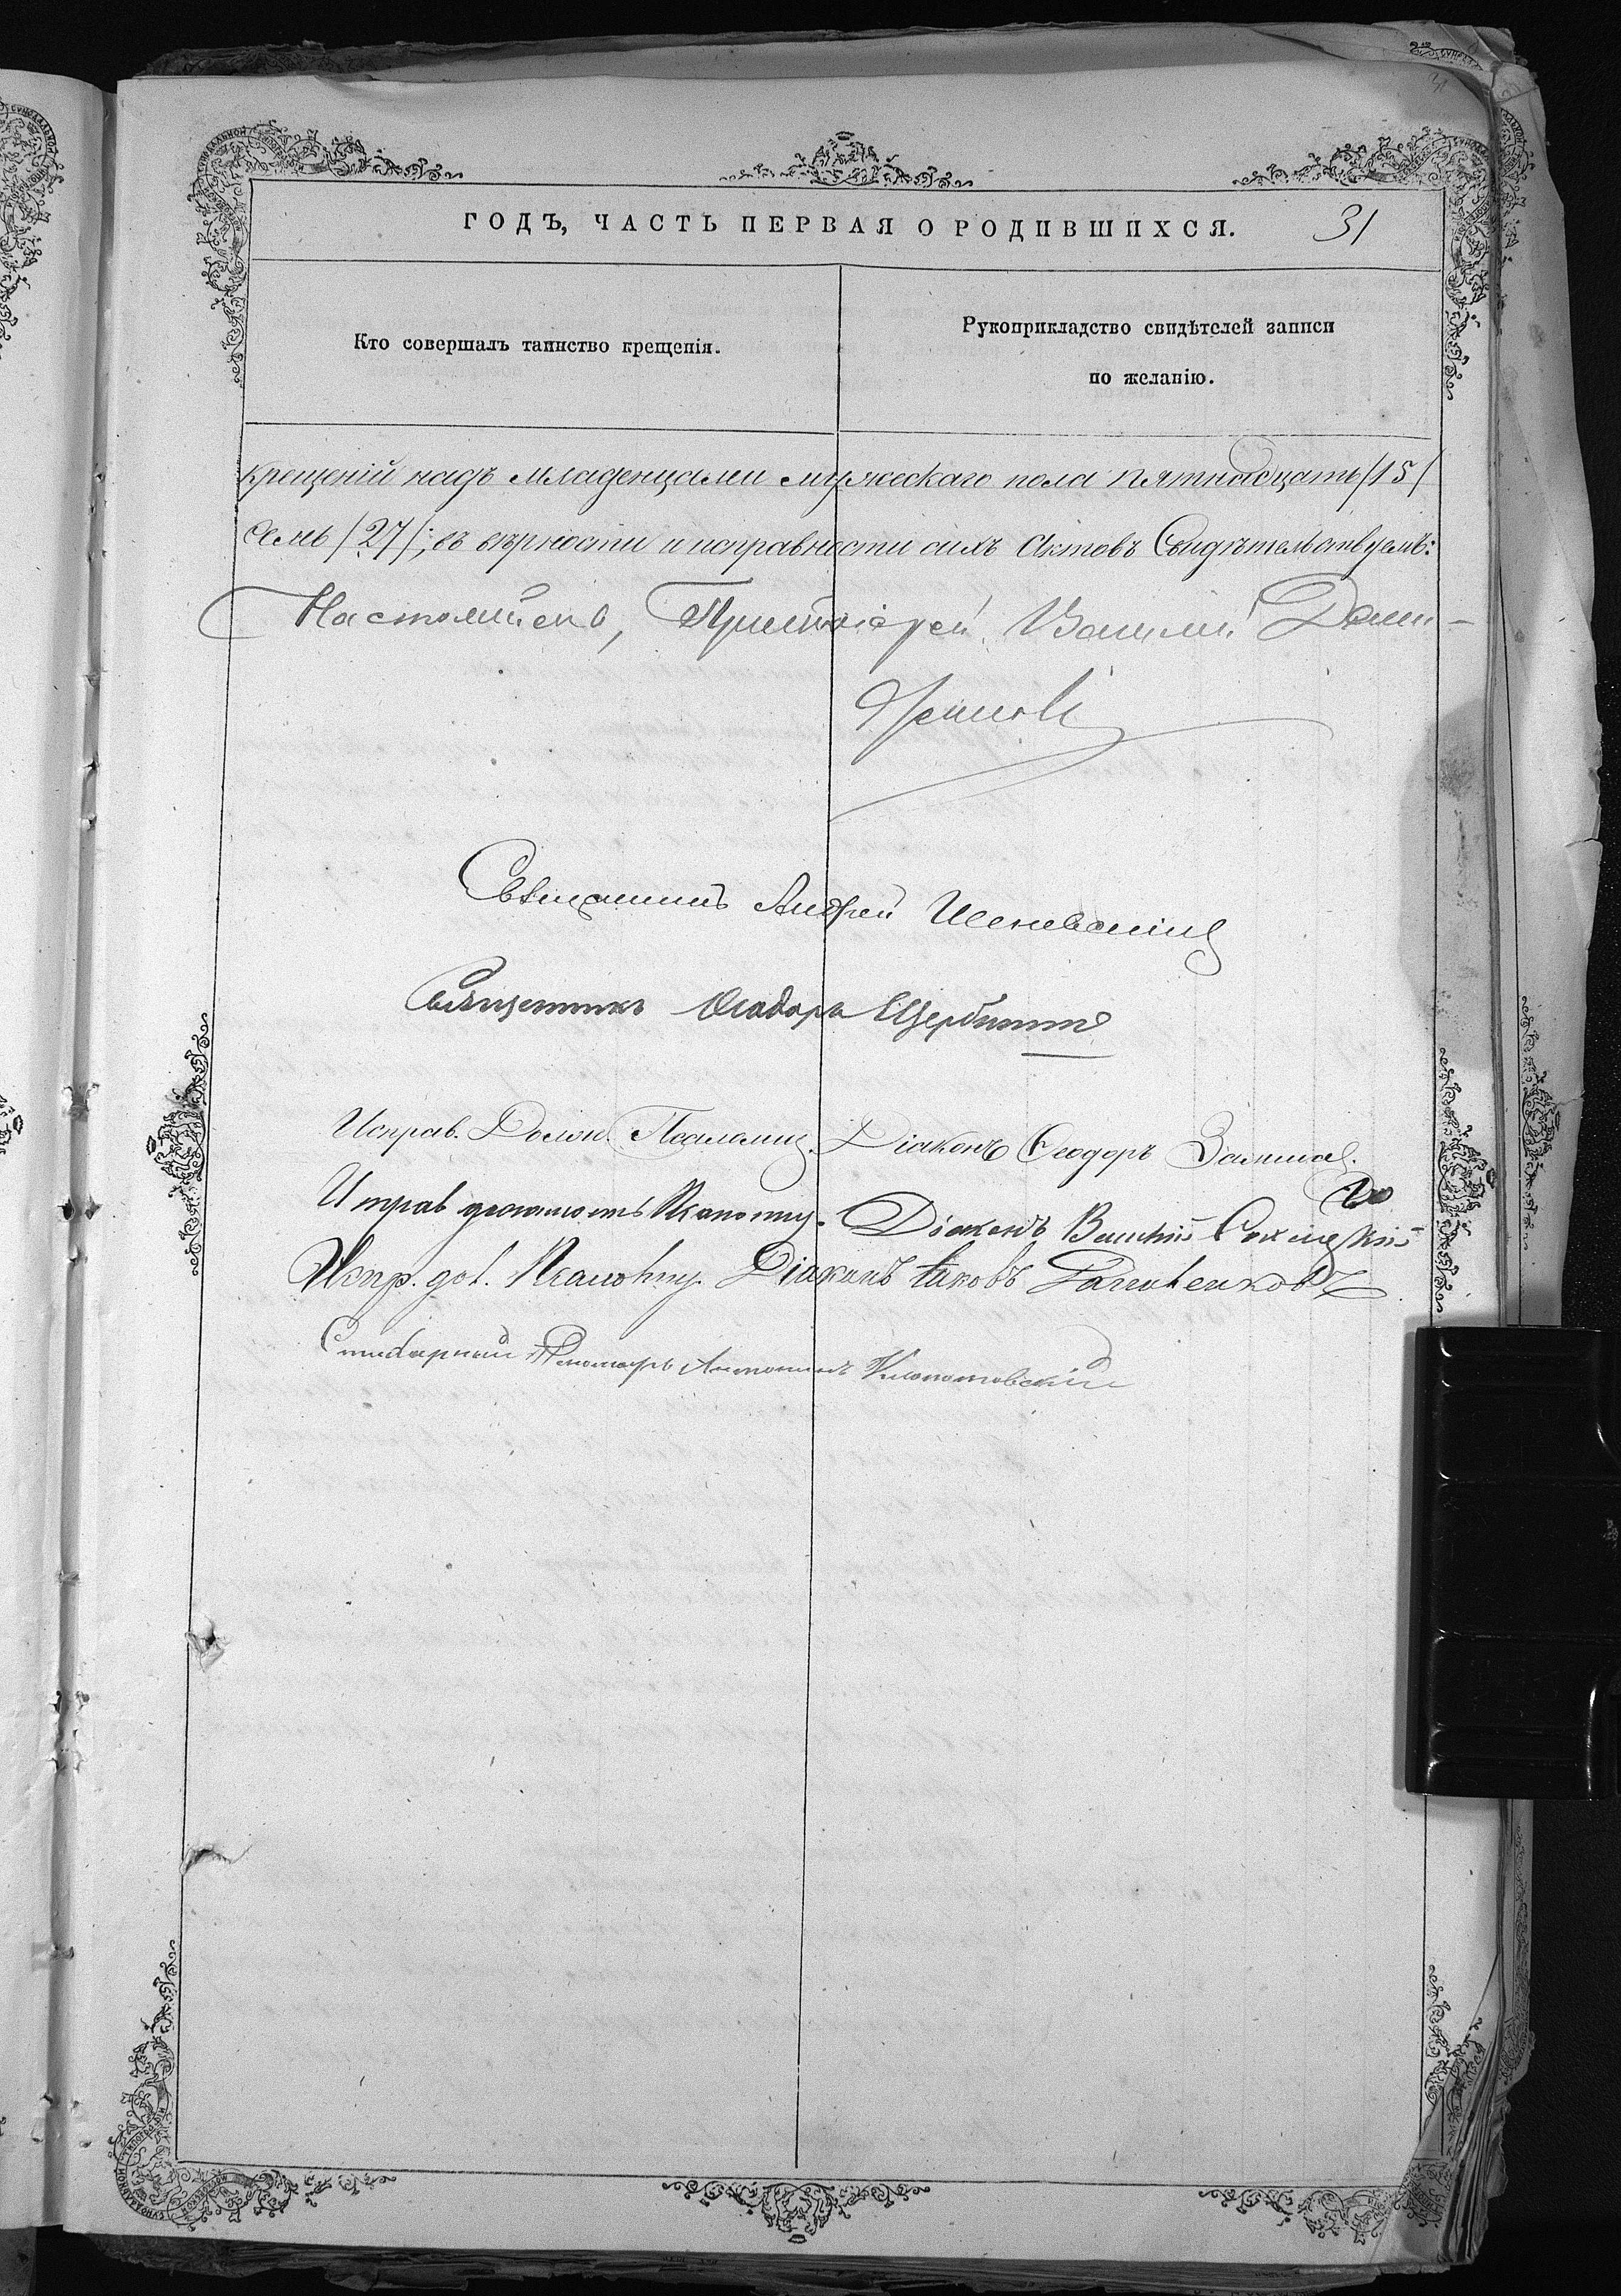 ГОДЪ, ЧАСТЬ ПЕРВАЯ О РОДИВШИХСЯ. 31
Кто совершалъ таинство крещенія.
Рукоприкладство свидѣтелей записи
по желанію.
крещеній надъ младенцами мужескаго пола пятнадцать /15/
семь /27/; въ вѣрности и исправности сихъ Актовъ Свидѣтельствуемъ:
Настоятель, Протоіерей Василій
Священникъ Андрей
Священникъ Ѳеодоръ Щербина
Исправ. Долж. Псаломщ. Діаконъ Ѳеодоръ
Исправ должность Псаломщ. Діаконъ Василій
Испр. дол. Псаломщ. Діаконъ Іаковъ
Стихарный Пономарь Антонинъ Клопотовскій